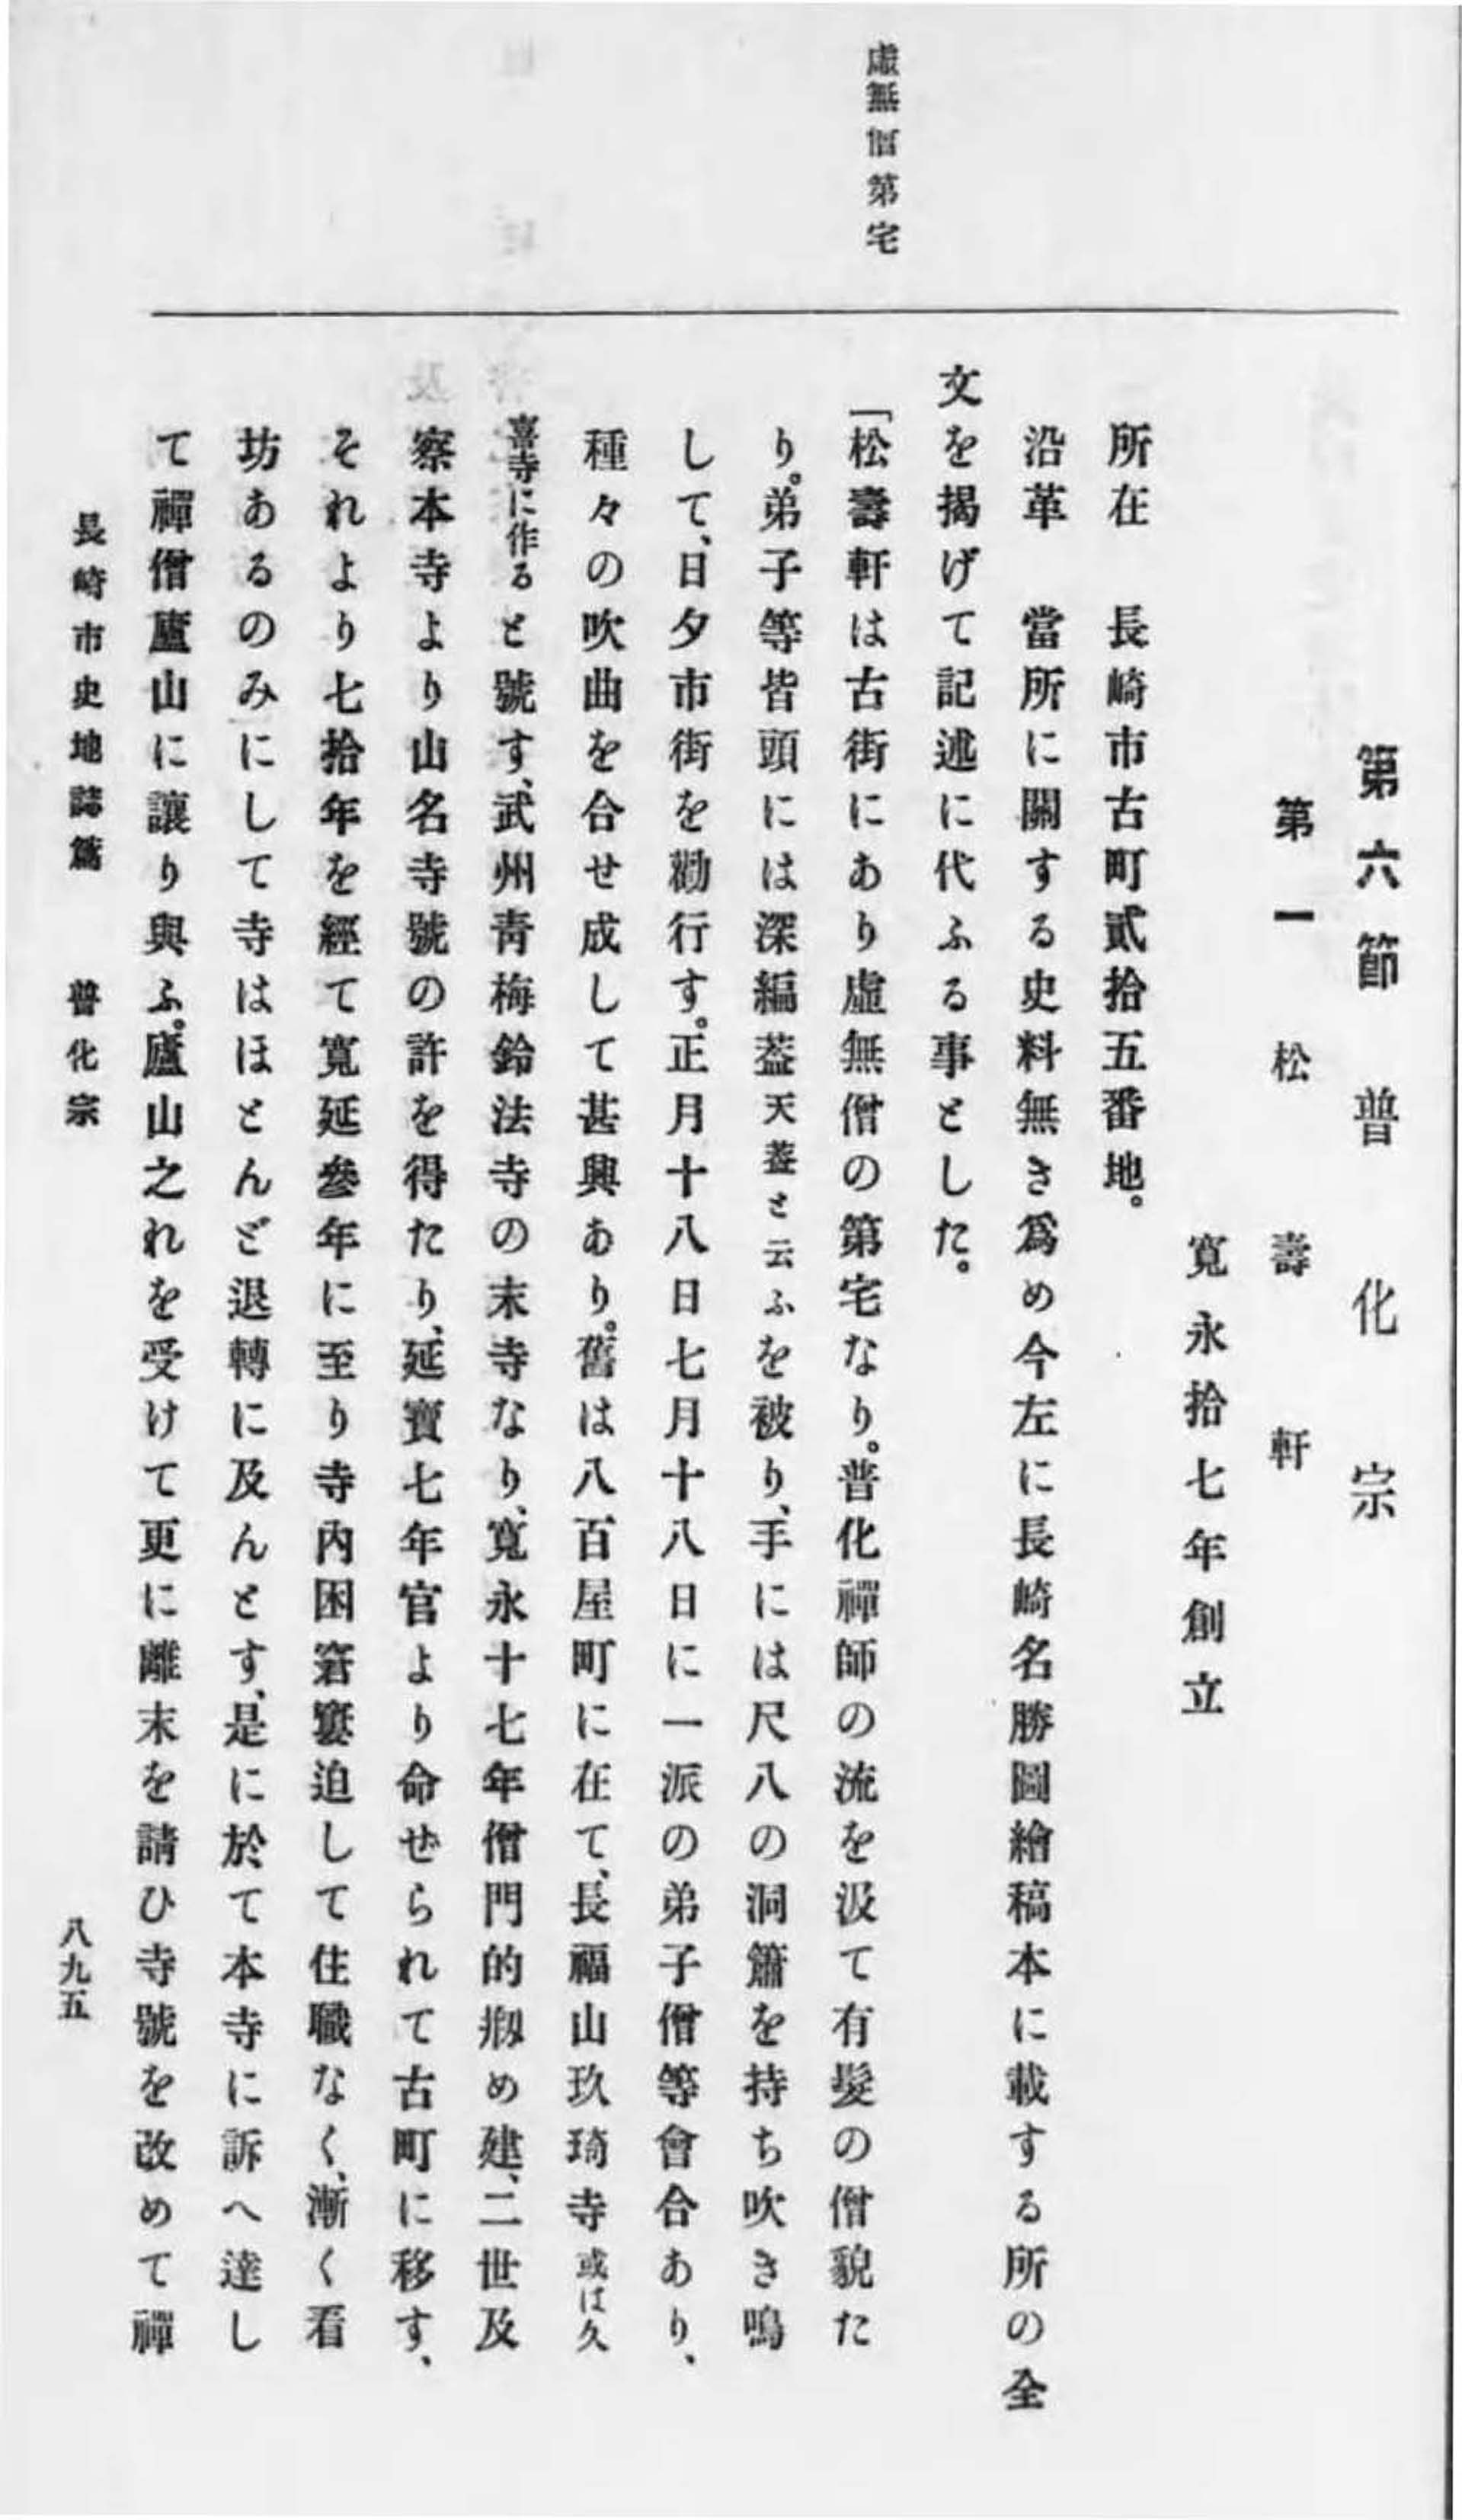 第六節 普化宗
第一 松壽軒
寛永拾七年創立
所在 長崎市古町貳拾五番地。
沿革 當所に關する史料無き爲め今左に長崎名勝圖繪稿本に載する所の全
文を揭げて記述に代ふる事とした。
虛無僧第宅
「松壽軒は古街にあり虛無僧の第宅なり。普化禪師の流を汲て有髮の僧貌た
り。弟子等皆頭には深編葢天葢と云ふを被り、手には尺八の洞簫を持ち吹き鳴
して、日夕市街を勸行す。正月十八日七月十八日に一派の弟子僧等會合あり、
種々の吹曲を合せ成して甚興あり。舊は八百屋町に在て、長福山玖琦寺或は久
喜寺に作ると號す、武州靑梅鈴法寺の末寺なり、寛永十七年僧門的剏め建、二世及
察本寺より山名寺號の許を得たり、延寶七年官より命せられて古町に移す、
それより七拾年を經て寛延參年に至り寺內困窘窶迫して住職なく、漸く看
坊あるのみにして寺はほとんど退轉に及んとす、是に於て本寺に訴へ達し
て禪僧廬山に讓り與ふ。廬山之れを受けて更に離末を請ひ寺號を改めて禪
長崎市史地誌篇 普化宗 八九五